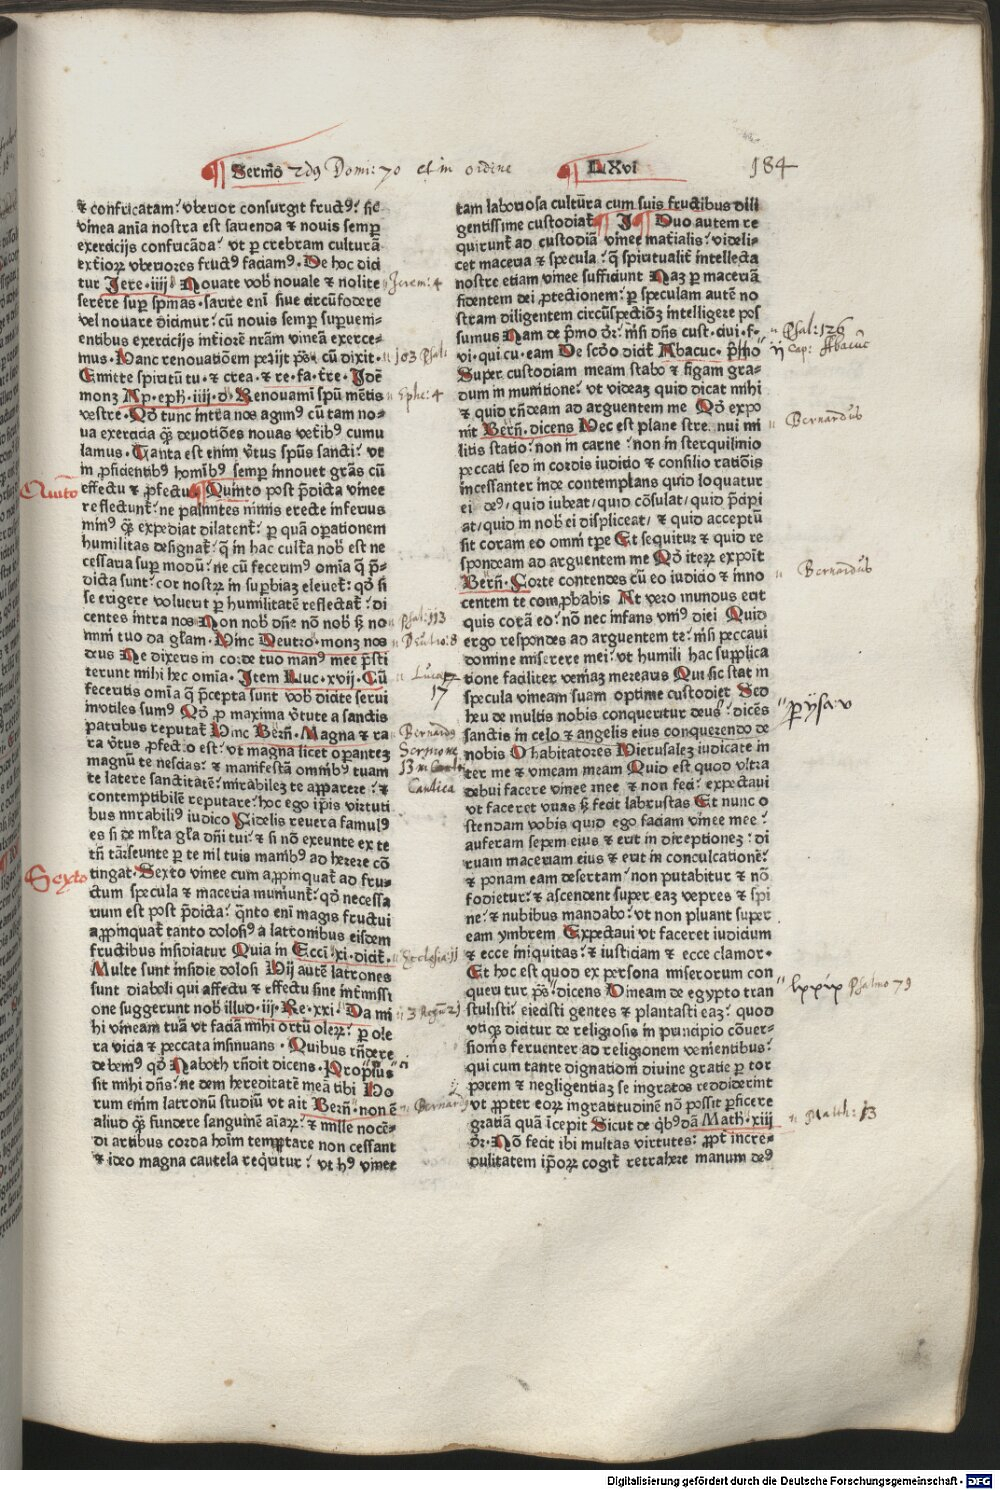 Sermo 2dꝯ Domi: 70 et in ordine LXvi 184
⁊ confricatam? vberior consurgit fructꝰ? sic
vinea anīa nostra est sarienda ⁊ nouis semꝑ
exercicijs confricāda? vt ꝑ crebram culturā
De hoc dici
tur Jere·iiij· Nouate vob̄ nouale ⁊ nolite
serere suꝑ spinas·sarire enī siue circūfodere
vel nouare dicimur? cū nouis semꝑ superueni-
entibus exercicijs interiorē nrām vineā exerce-
mus·Hanc renouatiōem petijt p̄s· cū dixit·
Emitte spiritū tu·⁊ crea·⁊ re·fa·t̄re·Idē
monꝫ Ap·eph·iiij·d· Renouamī spū mētis
vestre· Qd̄ tunc intra nos agimꝰ cū tam no-
ua exercicia qꝫ deuotiōes nouas vetibꝰ cumu
lamus·Tanta est enim v̄tus spūs sancti· vt
in ꝓficientibꝰ homībꝰ semꝑ innouet grās cū
effectu ⁊ ꝓfectu Quinto post p̄dicta vinee
reflectunt? ne palmites nimis erecte inferius
minꝰ qꝫ expediat dilatent? per quā oꝑationem
humilitas designat? q̄ in hac cultra nob̄ est ne
cessaria suꝑ modū? ne cū fecerimꝰ omīa q̄ p̄-
dicta sunt? cor nostrꝝ in suꝑbiaꝫ eleuet? qd̄ si
se erigere voluerit ꝑ humilitatē reflectat? di
centes intra nos Non nob̄ dn̄e nō nob̄ sꝫ no
mini tuo da gl̄am·Hinc Deutro·monꝫ nos
deus Ne dixeris in corde tuo manꝰ mee p̄sti
terunt mihi hec omīa·Item Luc·xvij·Cū
feceritis omīa q̄ p̄cepta sunt vob̄ dicite serui
inutiles sumꝰ Qd̄ ꝓ maxima v̄tute a sanctis
patribus reputat̄ Hinc Bern̄·Magna ⁊ ra
ra v̄tus ꝓfecto est? vt magna licet oꝑantez
magnū te nescias? ⁊ manifestā omībꝰ tuam
te latere sanctitatē? mirabilez te apparere? ⁊
contemptibilē reputare? hoc ego ip̄is virtuti
bus mirabiliꝰ iudico Fidelis reuera famulꝰ
es si de ml̄ta gl̄a dn̄i tui? ⁊ si nō exeunte ex te
tn̄ trāseunte ꝑ te nil tuis manibꝰ ad herere cō
tingat·Sexto vinee cum appinquāt ad fru-
ctum specula ⁊ maceria muniunt? qd̄ necessa
rium est post p̄dicta? q̄nto enī magis fructui
appinquat̄ tanto dolosiꝰ a latronibus eisdem
fructibus insidiatur Quia in Ecci·xi·dicit̄·
Multe sunt insidie dolosi Hij autē latrones
sunt diaboli qui affectu ⁊ effectu sine intmissi
one suggerunt nob̄ illud·iij·Re·xxi·Da mi
hi vineam tuā vt faciā mihi ortū oleꝝ? ꝑ ole
ra vicia ⁊ peccata insinuans·Quibus rn̄dere
debemꝰ qd̄ Naboth rn̄dit dicens·Propitius
sit mihi dn̄s? ne dem hereditatē meā tibi Ho
rum enim latronū studiū vt ait Bern̄·non ē
aliud qꝫ fundere sanguinē aīaꝝ? ⁊ mille nocē-
di artibus corda hoīm temptare non cessant
⁊ ideo magna cautela reqritur? vt hꝰ vinee
Quinto
Sexto
Jerem: 4
103 Psal:
Ephe: 4
Psal: 113
Deutro: 8
Lucæ
17
Bernardꝰ
Sermone
13 in
Cantica
Ecclesia: 11
3 Regū 21
Bernardꝰ
tam laboriosa cultūra cum suis fructibus dili
gentissime custodiat̄ Duo autem re
quirunt̄ ad custodiā vinee māterialis? videli-
cet maceria ⁊ specula? q̄ spiritualit̄ intellecta
nostre etiam vinee sufficiunt Naꝫ ꝑ maceriā
fidentem dei ꝓtectionem? ꝑ speculam autē no
stram diligentem circūspectiōꝫ intelligere pos
sumus Nam de p̄mo dr̄? nisi dn̄s cust·ciui·f·
vi·qui cu·eam De scd̄o dicit̄ Abacuc· p̄mo
Super custodiam meam stabo ⁊ figam gra-
dum in munitione? vt videaꝫ quid dicat mihi
⁊ quid rn̄deam ad arguentem me Qd̄ expo
nit Bern̄·dicens Nec est plane stre·nui mi
litis statio? non in carne? non in sterquilinio
peccati sed in cordis iudicio ⁊ consilio ratiōis
incessanter inde contemplans quid loquatur
ei deꝰ/quid iubeat/quid cōsulat/quid p̄cipi
at/quid in nob̄ ei displiceat/⁊ quid acceptū
sit coram eo omni tp̄e Et sequitur ⁊ quid re
spondeam ad arguentem me Qd̄ iteꝝ expoīt
Bern̄·Forte contendes cū eo iudicio ⁊ inno
centem te comꝓbabis At vero mundus erit
quis corā eo? nō nec infans vniꝰ diei Quid
ergo respondes ad arguentem te? nisi peccaui
domine miserere mei? vt humili hac supplica
tione faciliter veniaꝫ merearis Qui sic stat in
specula vineam suam optime custodiet Sed
heu de multis nobis conqueritur deus? dicēs
sanctis in celo ⁊ angelis eius conquerendo de
nobis O habitatores Hierusaleꝫ iudicate in
ter me ⁊ vineam meam Quid est quod vltra
debui facere vinee mee ⁊ non feci? expectaui
vt faceret vuas sꝫ fecit labruscas Et nunc o
stendam vobis quid ego faciam vinee mee?
auferam sepem eius ⁊ erit in direptioneꝫ? di
ruam maceriam eius ⁊ erit in conculcationē?
⁊ ponam eam desertam? non putabitur ⁊ nō
fodietur? ⁊ ascendent super eaꝫ vepres ⁊ spi
ne? ⁊ nubibus mandabo? vt non pluant super
eam ymbrem Expectaui vt faceret iudicium
⁊ ecce iniquitas? ⁊ iusticiam ⁊ ecce clamor·
Et hoc est quod ex persona miserorum con
queritur p̄s?·dicens Vineam de egypto tran
stulisti? eiecisti gentes ⁊ plantasti eaꝫ? quod
vtiqꝫ dicitur de religiosis in principio cōuer-
sionis feruenter ad religionem venientibus?
qui cum tante dignationi diuine gratie ꝑ tor
porem ⁊ negligentiaꝫ se ingratos reddiderint
vt ꝓpter eoꝝ ingratitudinē nō possit ꝑficere
gratiā quā īcepit Sicut de qbꝰdā Math·xiij
dr̄·Nō fecit ibi multas virtutes? ꝓpt̄ incre-
dulitatem ip̄oꝝ cogit̄ retrahere manum deꝰ
Psal: 126
ij Cap: Abacuc
Bernardus
Bernardus
ysa: v
lxxix Psalmo 79
Matth: 13
Digitalisierung gefördert durch die Deutsche Forschungsgemeinschaft - DFG